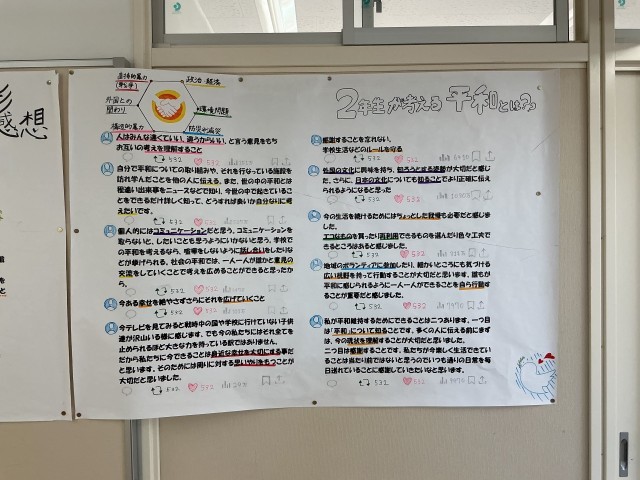 感想
2年生が考える平和とは?
直接的暴力
(戦争)
政治 経済
外国との
関わり
環境問題
構造的暴力
防災や減災
人はみんな違くていい、違うからいい、と言う意見をもち
お互いの考えを理解すること
532 532
自分で平和についての取り組みや、それを行っている施設を
訪れ学んだことを他の人に伝える。また、世の中の平和とは
程遠い出来事をニュースなどで知り、今世の中で起きていること
をできるだけ詳しく知って、どうすれば良いか自分なりに考
えたいです。
532 532
個人的にはコミュニケーションだと思う。コミュニケーションを
取らないと、したいことも思うようにいかないと思う。学校で
の平和を考えるなら、喧嘩をしないように話し合いをしたりな
どが挙げられる。社会の平和では、一人一人が誰かと意見の
交流をしていくことで考えを広めることができると思ったか
ら。
532 532
今ある幸せを絶やさずさらにそれを広げていくこと
532 532
今テレビを見てみると戦時中の国や学校に行けていない子供
達が沢山いる様に感じます。でも今の私たちにはそれ全てを
止められるほど大きな力を持っている訳ではありません。
だから私たちに今できることは身近な幸せを大切にする事だ
と思います。そのためには周りに対する思いやりをもつことが
大切だと思いました。
532 532
感謝することを忘れない。
学校生活などのルールを守る
532 532
外国の文化に興味を持ち、知ろうとする姿勢が大切だと感じ
た。さらに、日本の文化についても知ることでより正確に伝え
られるようになると思った
532 532
今の生活を続けるためにはちょっとした我慢も必要だと感じ
ました。
エコなものを買ったり再利用できるものを選んだり色々工夫で
きるところはあると感じました。
532 532
地域のボランティアに参加したり、細かいところにも気づける
広い視野を持って行動することが大切だと思います。誰もが
平和に感じられるように一人一人ができることを自ら行動す
ることが重要だと感じました。
532 532
私が平和維持するためにできることは二つあります。一つ目
は「平和」について知ることです。多くの人に伝える前にまず
は、今の現状を理解することが大切だと思いました。
二つ目は感謝することです。私たちが今楽しく生活できてい
ることは当たり前ではないと思うのでいつも通りの日常を毎
日送れていることに感謝していきたいなと思います。
532 532